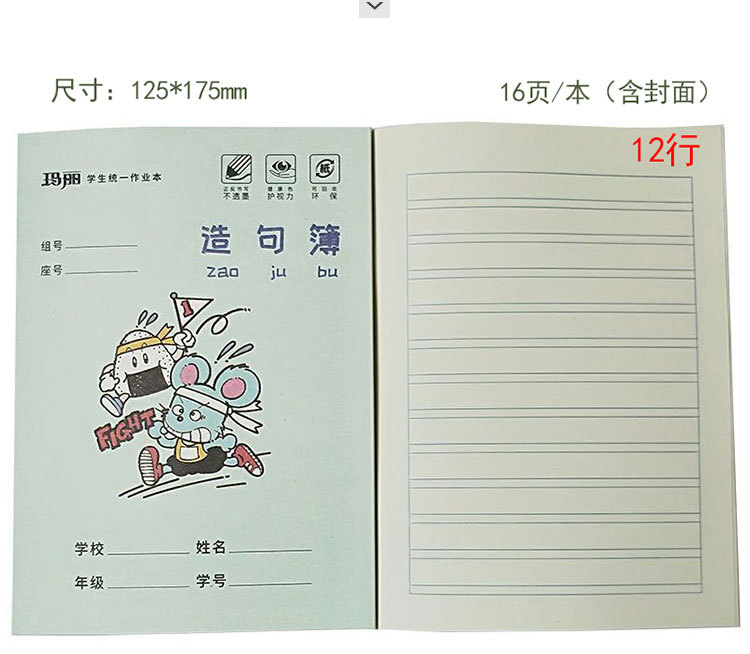 尺寸：125*175mm
16页/本（含封面）
12行
玛丽 学生统一作业本
正反书写 不透墨
健康色 护视力
纸
可回收 环保
组号
座号
造句簿
zao ju bu
1
FIGHT
学校 姓名
年级 学号